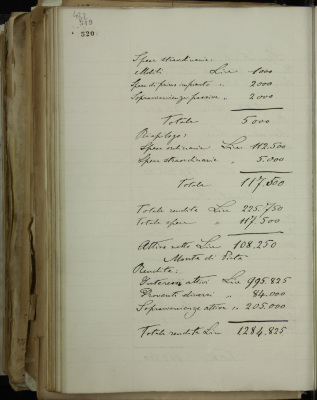 520
Spese straordinarie:
Mobili Lire 1000
Spese di primo impianto " 2000
Sopravvenienze passive " 2000
Totale 5000
Riepilogo:
Spese ordinarie Lire 112.500
Spese straordinarie " 5.000
Totale 117.500
Totale rendite Lire 225.750
Totale spese " 117.500
Attivo netto Lire 108.250
Monte di Pietà
Rendite:
Interessi attivi Lire 995.825
Proventi diversi " 84.000
Sopravvenienze attive " 205.000
Totale rendite Lire 1284.825